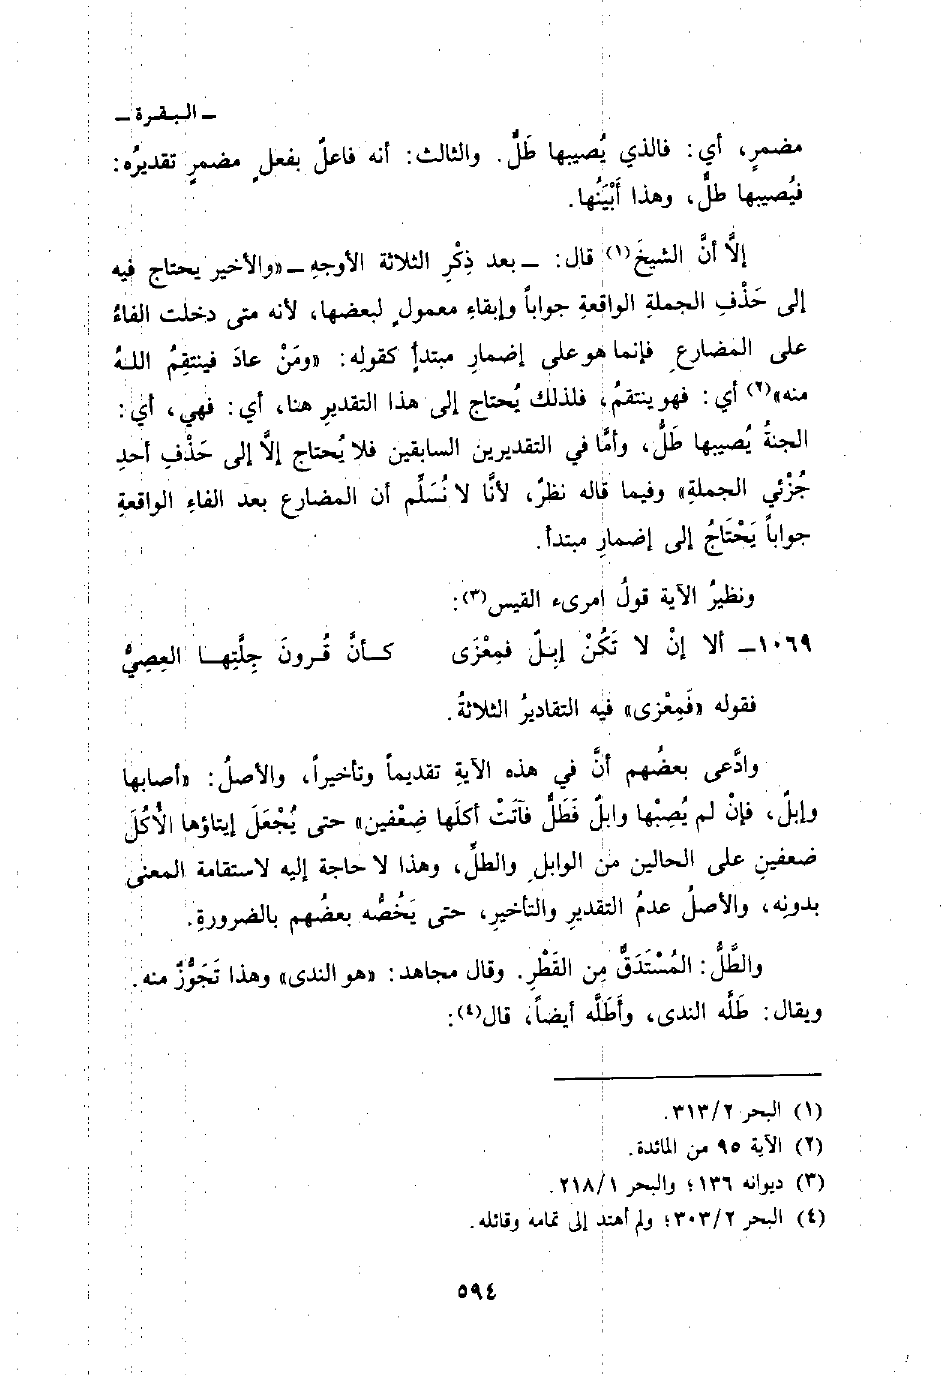 ـ البقرة ـ
مضمرٍ، أي: فالذي يُصيبها طَلٌّ. والثالث: أنه فاعلٌ بفعلٍ مضمرٍ تقديرُه:
فيُصيبها طلٌّ، وهذا أَبْيَنُها.
إلاَّ أنَّ الشيخَ(١) قال: ـ بعد ذِكْرِ الثلاثة الأوجهِ ـ «والأخير يحتاج فيه
إلى حَذْفِ الجملةِ الواقعةِ جواباً وإبقاءِ معمولٍ لبعضها، لأنه متى دخلت الفاءُ
على المضارعِ فإنما هو على إضمارِ مبتدأٍ كقولِه: «ومَنْ عادَ فينتقِمُ اللهُ
منه»(٢) أي: فهو ينتقمُ، فلذلك يُحتاج إلى هذا التقديرِ هنا، أي: فهي، أي:
الجنةُ يُصيبها طَلُّ، وأمَّا في التقديرين السابقين فلا يُحتاج إلَّا إلى حَذْفِ أحدِ
جُزْئي الجملةِ» وفيما قاله نظرٌ، لأنَّا لا نُسَلِّم أن المضارع بعد الفاءِ الواقعةِ
جواباً يَحْتَاجُ إلى إضمارِ مبتدأ.
ونظيرُ الآية قولُ امرىء القيس(٣):
١٠٦٩ـ ألا إنْ لا تَكُنْ إبِلٌ فمِعْزَى كـأنَّ قُـرونَ جِلَّتِهـا العِصِيُّ
فقوله «فَمِعْزى» فيه التقاديرُ الثلاثةُ.
وادَّعى بعضُهم أنَّ في هذه الآيةِ تقديماً وتأخيراً، والأصلُ: «أصابها
وابلٌ، فإنْ لم يُصِبْها وابلٌ فَطَلٌّ فآتَتْ أكلَها ضِعْفين» حتى يُجْعَلَ إيتاؤها الأُكُلَ
ضعفينِ على الحالين من الوابلِ والطلِّ، وهذا لا حاجة إليه لاستقامة المعنى
بدونِه، والأصلُ عدمُ التقديرِ والتأخيرِ، حتى يَخُصُّه بعضُهم بالضرورةِ.
والطَّلُّ: المُسْتَدَقُّ مِن القَطْرِ. وقال مجاهد: «هو الندى» وهذا تَجَوُّزٌ منه.
ويقال: طَلَّه الندى، وأَطَلَّه أيضاً، قال(٤):
(١) البحر ٣١٣/٢.
(٢) الآية ٩٥ من المائدة.
(٣) ديوانه ١٣٦؛ والبحر ٢١٨/١.
(٤) البحر ٣٠٣/٢؛ ولم أهتد إلى تمامه وقائله.
٥٩٤